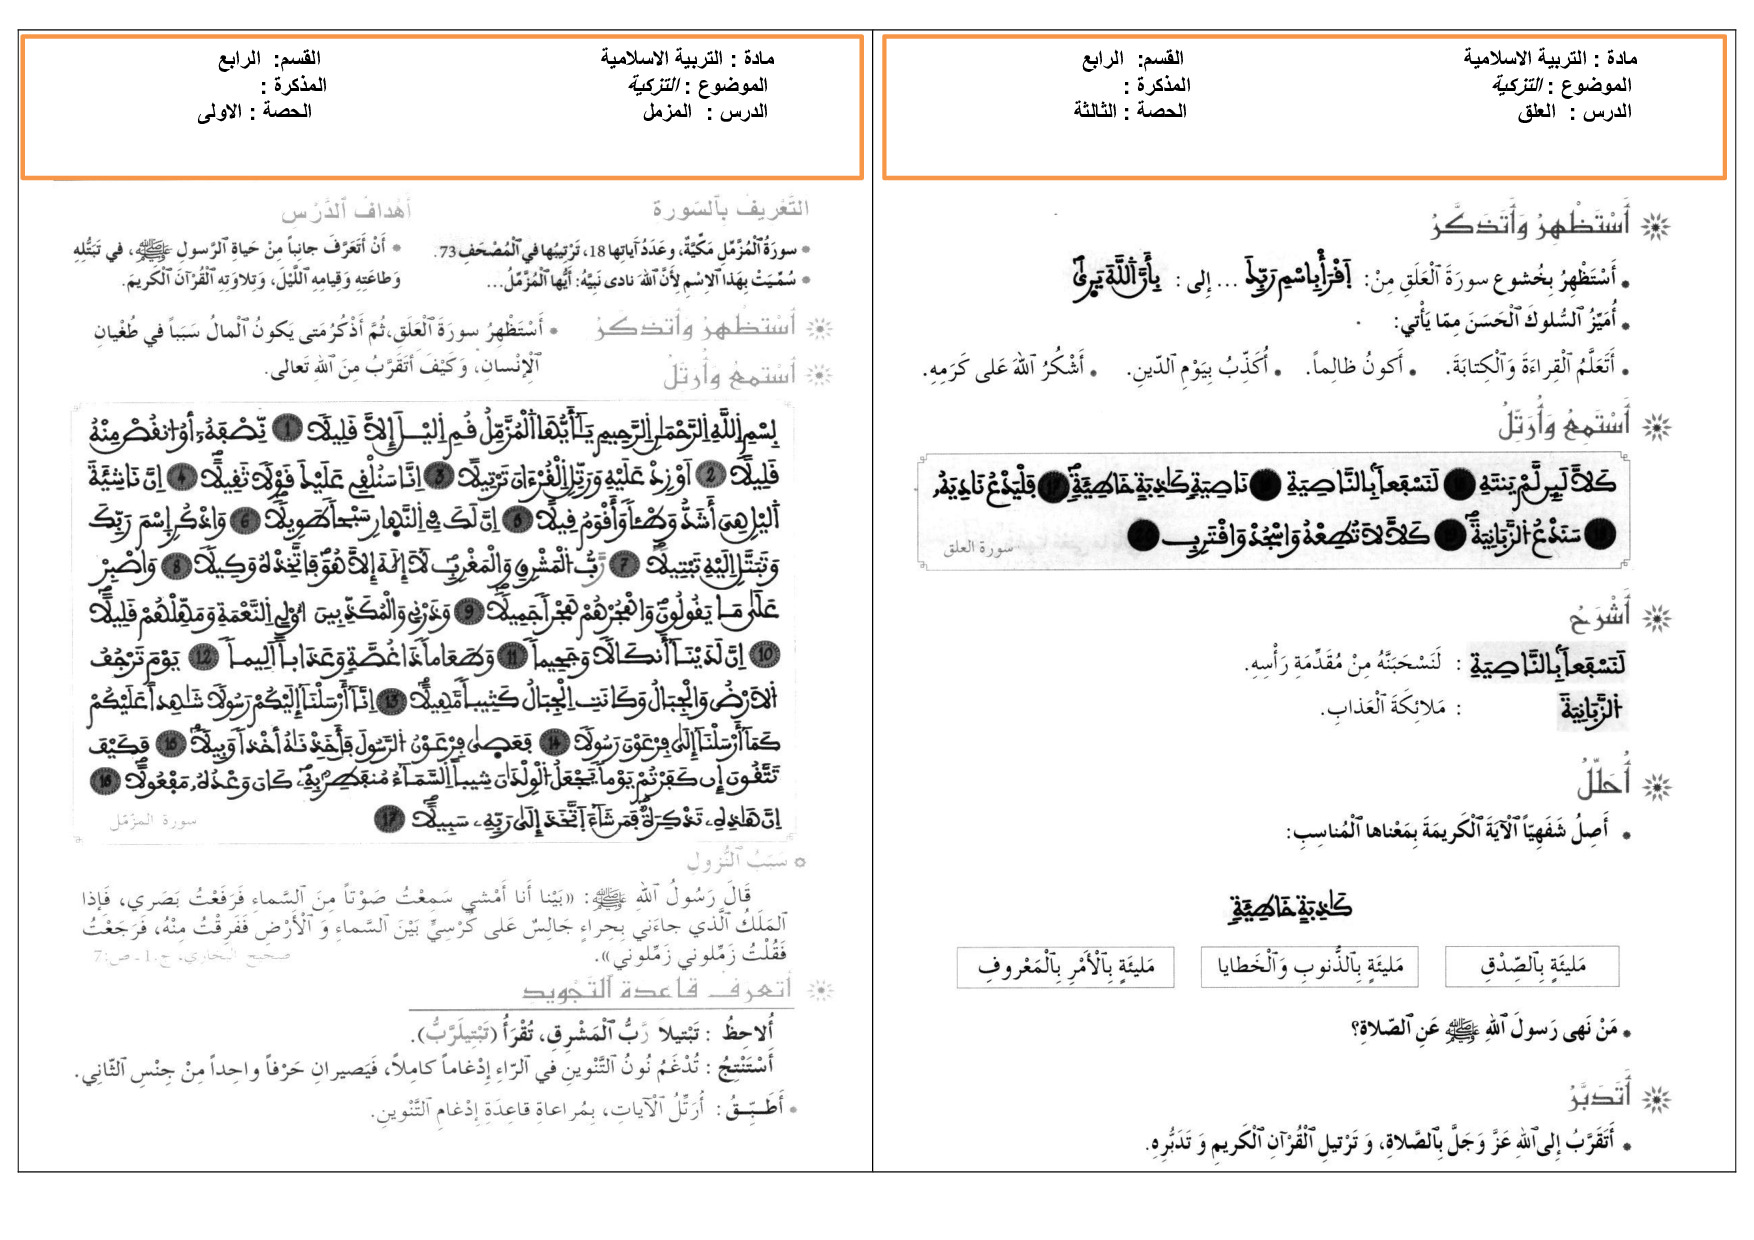 مادة : التربية الاسلامية القسم: الرابع
الموضوع : التزكية المذكرة :
الدرس : العلق الحصة : الثالثة
أَسْتَظْهِرُ وَأَتَذَكَّرُ
• أَسْتَظْهِرُ بِخُشوعٍ سورَةَ ٱلْعَلَقِ مِنْ: اَ۪قْرَأْ بِاسْمِ رَبِّكَ ... إلى : بِأَنَّ اَ۬للَّهَ يَر۪يٰ
• أُمَيِّزُ ٱلسُّلوكَ ٱلْحَسَنَ مِمّا يَأْتي:
• أَتَعَلَّمُ ٱلْقِراءَةَ وَٱلْكِتابَةَ. • أَكونُ ظالِماً. • أُكَذِّبُ بِيَوْمِ ٱلدّينِ. • أَشْكُرُ ٱللهَ عَلى كَرَمِهِ.
أَسْتَمِعُ وَأُرَتِّلُ
كَلَّا لَئِن لَّمْ يَنتَهِ 16 لَنَسْفَعاَۢ بِالنَّاصِيَةِ 16 نَاصِيَةٖ كَٰذِبَةٍ خَاطِئَةٖ 17 فَلْيَدْعُ نَادِيَهُۥ
18 سَنَدْعُ اُ۬لزَّبَانِيَةَ 19 كَلَّا لَا تُطِعْهُ وَاسْجُدْ وَاقْتَرِب 20
سورة العلق
أَشْرَحُ
لَنَسْفَعاَۢ بِالنَّاصِيَةِ : لَنَسْحَبَنَّهُ مِنْ مُقَدِّمَةِ رَأْسِهِ.
اُ۬لزَّبَانِيَةَ : مَلائِكَةَ ٱلْعَذابِ.
أُحَلِّلُ
• أَصِلُ شَفَهِيّاً ٱلْآيَةَ ٱلْكَريمَةَ بِمَعْناها ٱلْمُناسِبِ:
كَٰذِبَةٍ خَاطِئَةٖ
مَليئَةٍ بِٱلصِّدْقِ مَليئَةٍ بِٱلذُّنوبِ وَٱلْخَطايا مَليئَةٍ بِٱلْأَمْرِ بِٱلْمَعْروفِ
• مَنْ نَهى رَسولَ ٱللهِ ﷺ عَنِ ٱلصَّلاةِ؟
أَتَدَبَّرُ
• أَتَقَرَّبُ إِلى ٱللهِ عَزَّ وَجَلَّ بِٱلصَّلاةِ، وَ تَرْتيلِ ٱلْقُرْآنِ ٱلْكَريمِ وَ تَدَبُّرِهِ.
مادة : التربية الاسلامية القسم: الرابع
الموضوع : التزكية المذكرة :
الدرس : المزمل الحصة : الاولى
ٱلتَّعْريفُ بِٱلسّورَةِ
• سورَةُ ٱلْمُزَّمِّلِ مَكِّيَّةٌ، وعَدَدُ آياتِها 18، تَرْتيبُها في ٱلْمُصْحَفِ 73.
• سُمِّيَتْ بِهَذا ٱلِاسْمِ لِأَنَّ ٱللهَ نادى نَبِيَّهُ: أَيُّها ٱلْمُزَّمِّلُ...
أَهْدافُ ٱلدَّرْسِ
• أَنْ أَتَعَرَّفَ جانِباً مِنْ حَياةِ ٱلرَّسولِ ﷺ، في تَبَتُّلِهِ
وَطاعَتِهِ وَقِيامِهِ ٱللَّيْلَ، وَتِلاوَتِهِ ٱلْقُرْآنَ ٱلْكَريمَ.
أَسْتَظْهِرُ وَأَتَذَكَّرُ • أَسْتَظْهِرُ سورَةَ ٱلْعَلَقِ، ثُمَّ أَذْكُرُ مَتى يَكونُ ٱلْمالُ سَبَباً في طُغْيانِ
ٱلْإِنْسانِ، وَكَيْفَ أَتَقَرَّبُ مِنَ ٱللهِ تَعالى.
أَسْتَمِعُ وَأُرَتِّلُ
بِسْمِ اِ۬للَّهِ اِ۬لرَّحْمَٰنِ اِ۬لرَّحِيمِ يَٰٓأَيُّهَا اَ۬لْمُزَّمِّلُ قُمِ اِ۬ليْلَ إِلَّا قَلِيلٗا 1 نِّصْفَهُۥٓ أَوُ اُ۟نقُصْ مِنْهُ
قَلِيلًا 2 أَوْ زِدْ عَلَيْهِ وَرَتِّلِ اِ۬لْقُرْءَانَ تَرْتِيلًا 3 اِنَّا سَنُلْقِي عَلَيْكَ قَوْلٗا ثَقِيلًا 4 اِنَّ نَاشِئَةَ
اَ۬ليْلِ هِيَ أَشَدُّ وَطْـٔٗا وَأَقْوَمُ قِيلًا 5 اِنَّ لَكَ فِے اِ۬لنَّهَارِ سَبْحاٗ طَوِيلٗا 6 وَاذْكُرِ اِ۪سْمَ رَبِّكَ
وَتَبَتَّلِ اِلَيْهِ تَبْتِيلٗا 7 رَّبُّ اُ۬لْمَشْرِقِ وَالْمَغْرِبِ لَآ إِلَٰهَ إِلَّا هُوَ فَاتَّخِذْهُ وَكِيلٗا 8 وَاصْبِرْ
عَلَىٰ مَا يَقُولُونَ وَاهْجُرْهُمْ هَجْراٗ جَمِيلٗا 9 وَذَرْنِے وَالْمُكَذِّبِينَ أُوْلِے اِ۬لنَّعْمَةِ وَمَهِّلْهُمْ قَلِيلًا
10 اِنَّ لَدَيْنَآ أَنكَالٗا وَجَحِيماٗ 11 وَطَعَاماٗ ذَا غُصَّةٖ وَعَذَاباً أَلِيماٗ 12 يَوْمَ تَرْجُفُ
اُ۬لَارْضُ وَالْجِبَالُ وَكَانَتِ اِ۬لْجِبَالُ كَثِيباٗ مَّهِيلًا 13 اِنَّآ أَرْسَلْنَآ إِلَيْكُمْ رَسُولٗا شَٰهِداً عَلَيْكُمْ
كَمَآ أَرْسَلْنَآ إِلَىٰ فِرْعَوْنَ رَسُولٗا 14 فَعَصَىٰ فِرْعَوْنُ اُ۬لرَّسُولَ فَأَخَذْنَٰهُ أَخْذاٗ وَبِيلٗا 15 فَكَيْفَ
تَتَّقُونَ إِن كَفَرْتُمْ يَوْماٗ يَجْعَلُ اُ۬لْوِلْدَٰنَ شِيباً اِ۬لسَّمَآءُ مُنفَطِرُۢ بِهِۦ كَانَ وَعْدُهُۥ مَفْعُولًا 16
اِنَّ هَٰذِهِۦ تَذْكِرَةٞ فَمَن شَآءَ اَ۪تَّخَذَ إِلَىٰ رَبِّهِۦ سَبِيلًا 17
سورة المزّمّل
سَبَبُ ٱلنُّزولِ
قَالَ رَسُولُ ٱللهِ ﷺ: «بَيْنا أَنا أَمْشي سَمِعْتُ صَوْتاً مِنَ ٱلسَّماءِ فَرَفَعْتُ بَصَري، فَإِذا
ٱلمَلَكُ ٱلَّذي جاءَني بِحِراءٍ جَالِسٌ عَلى كُرْسِيٍّ بَيْنَ ٱلسَّماءِ وَ ٱلْأَرْضِ فَفَرِقْتُ مِنْهُ، فَرَجَعْتُ
فَقُلْتُ زَمِّلوني زَمِّلوني». صحيح البخاري، ج.1 ـ ص:7
أَتَعَرَّفُ قاعِدَةَ ٱلتَّجْويدِ
أُلاحِظُ : تَبْتيلاً رَّبُّ ٱلْمَشْرِقِ، تُقْرَأُ (تَبْتيلَرَّبُّ).
أَسْتَنْتِجُ : تُدْغَمُ نُونُ ٱلتَّنْوينِ في ٱلرّاءِ إِدْغاماً كامِلاً، فَيَصيرانِ حَرْفاً واحِداً مِنْ جِنْسِ ٱلثّانِي.
• أُطَبِّقُ : أُرَتِّلُ ٱلْآياتِ، بِمُراعاةِ قاعِدَةِ إِدْغامِ ٱلتَّنْوينِ.